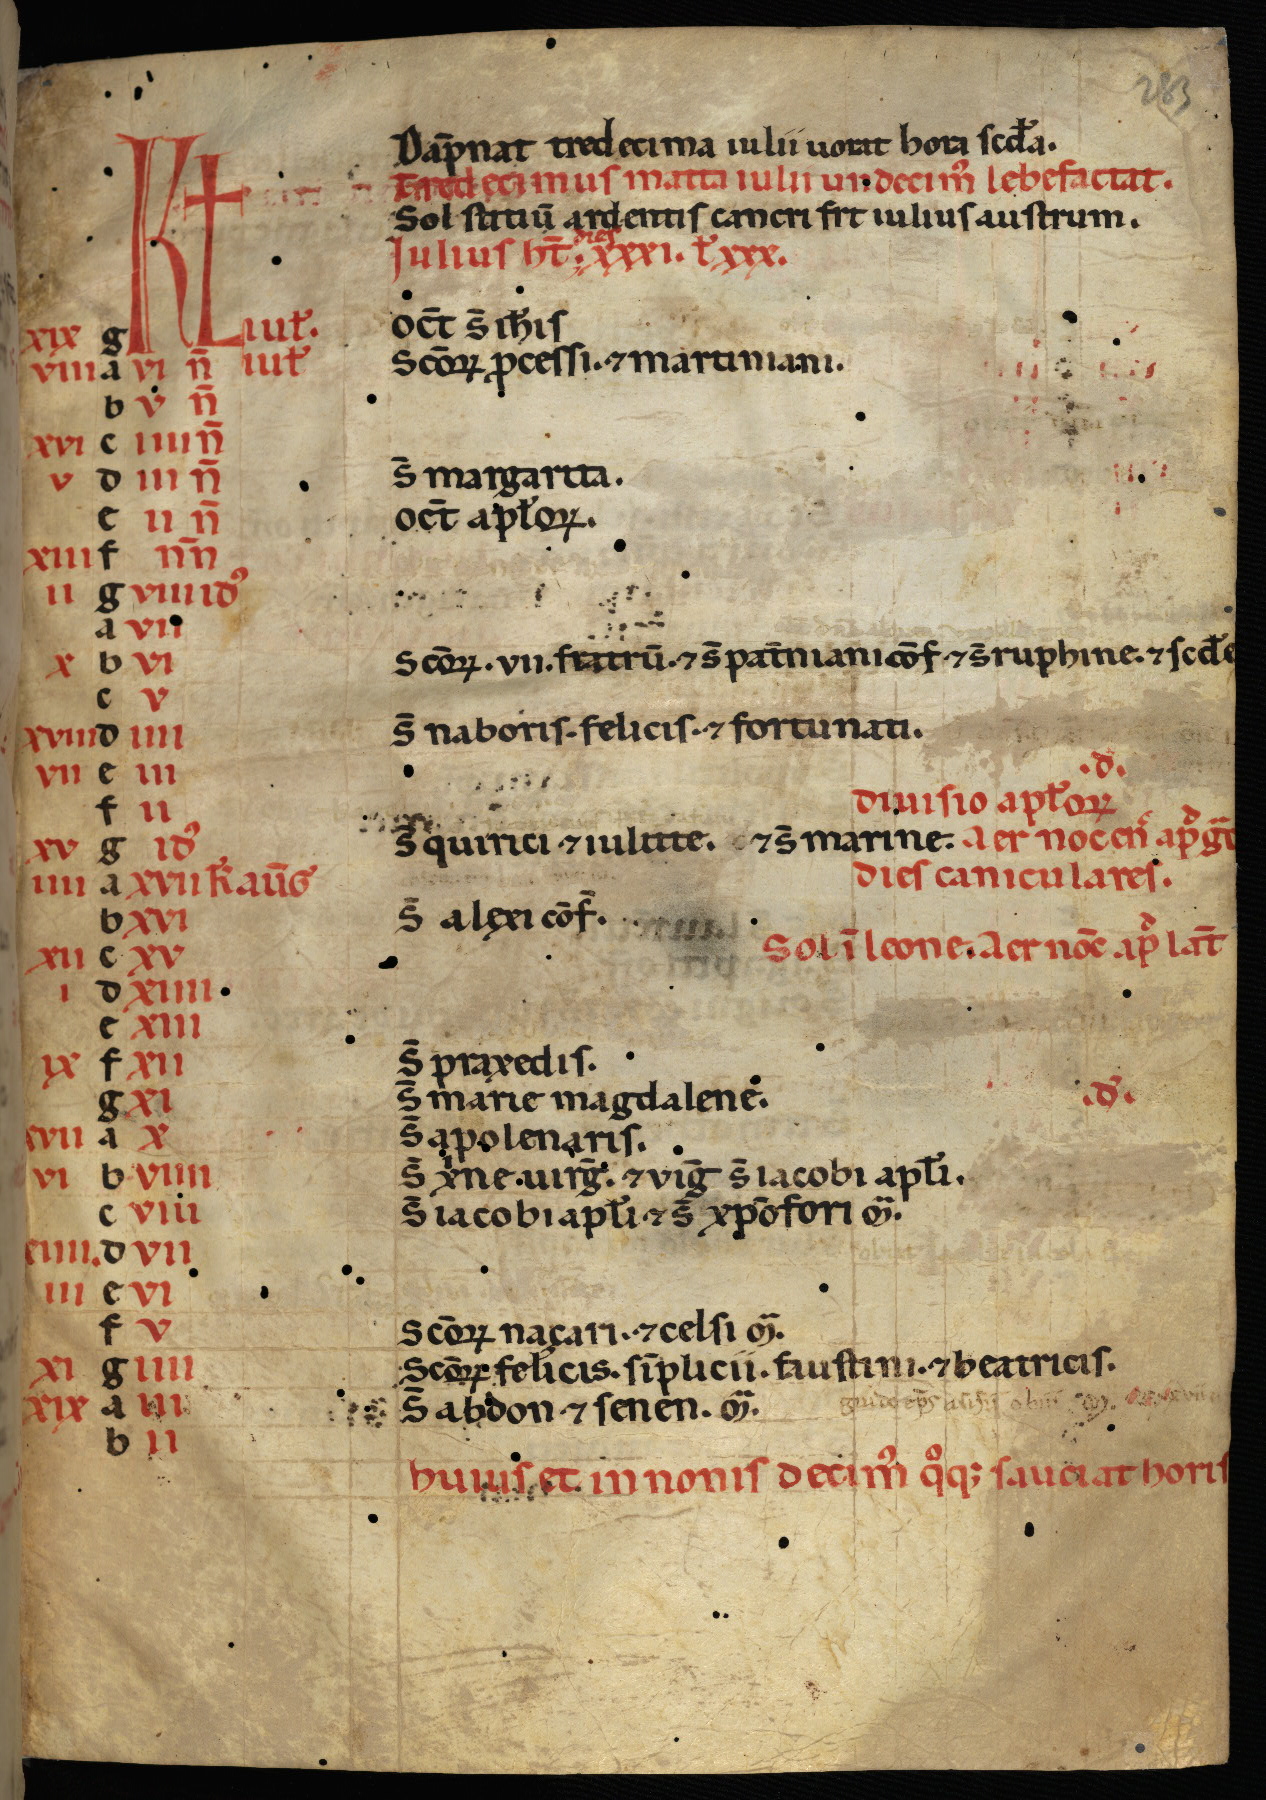 283
Dāpnat tredecima iulii uorat hora scđa.
Tredecimus mactat iulii undecimꝰ lebefactat.
Sol stitiū ardentis cancri frt iulius austrum.
Iulius ht̄. dies xxxi. ł xxx.
xix g KL iuł. oct̄ s̄ ioħis
viii a vi n̄ iuł scōꝝ pcessi. ⁊ martiniani.
b v n̄
xvi c iiii n̄
v d iii n̄ s̄ margarita.
e ii n̄ oct̄ apłoꝝ.
xiii f nn̄
ii g viii idꝰ
a vii
x b vi scōꝝ. vii. fratrū. ⁊ s̄ pat̄niani cōf. ⁊ s̄ ruphine. ⁊ scđe
c v
xviii d iiii s̄ naboris. felicis. ⁊ fortunati.
vii e iii .đ.
f ii diuisio apłoꝝ
xv g idꝰ s̄ quirici ⁊ iulitte. ⁊ s̄ marine. Aer nocen̄ ap̄ ḡ
iiii a xvii kł aūg dies caniculares.
b xvi s̄ alexi cōf.
xii c xv Sol ī leone. Aer noc̄ ap̄ lat̄
i d xiiii
e xiii
ix f xii s̄ praxedis.
g xi s̄ marie magdalene. .đ.
xvii a x s̄ apolenaris.
vi b viiii s̄ xp̄ne. uirḡ. ⁊ viḡ s̄ iacobi apłi.
c viii s̄ iacobi apłi ⁊ s̄ xpōfori m̄.
xiiii. d vii
iii e vi
f v scōꝝ naçari. ⁊ celsi m̄.
xi g iiii scōꝝ felicis. sīplicii. faustini. ⁊ beatricis.
xix a iii s̄ abdon ⁊ senen. m̄.
b ii
huius et in nonis decimꝰ q̊q; sauciat horis